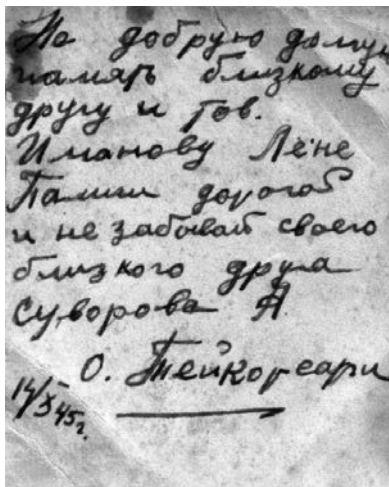 На добрую долгую
память близкому
другу и тов.
Иманову Лёне
Помни дорогой
и не забывай своего
близкого друга
Суворова А.
О. Тейкарсари
14/X 45 г.